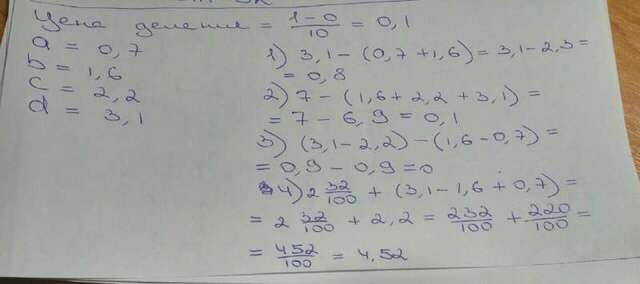 Цена деления = (1-0)/10 = 0,1
a = 0,7
b = 1,6
c = 2,2
d = 3,1
1) 3,1-(0,7+1,6)=3,1-2,3=
=0,8
2) 7-(1,6+2,2+3,1)=
=7-6,9=0,1
3) (3,1-2,2)-(1,6-0,7)=
=0,9-0,9=0
4) 2 32/100 + (3,1-1,6+0,7)=
= 2 32/100 + 2,2 = 232/100 + 220/100 =
= 452/100 = 4,52